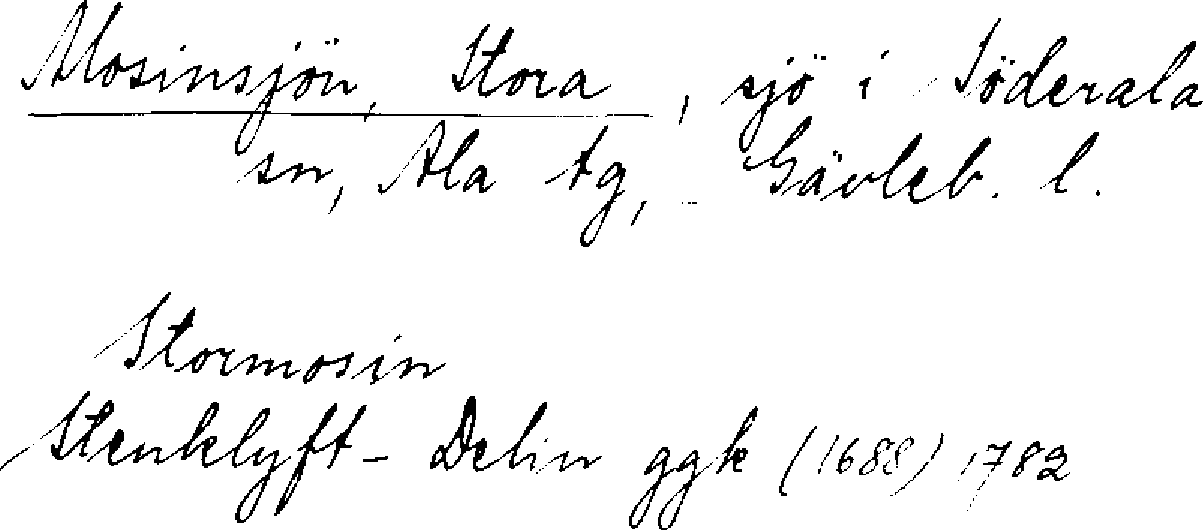 Mosinsjön, Stora, sjö i Söderala
sn, Ala tg, Gävleb. l.
Stormosin
Stenklyft - Delin ggk (1688) 1782